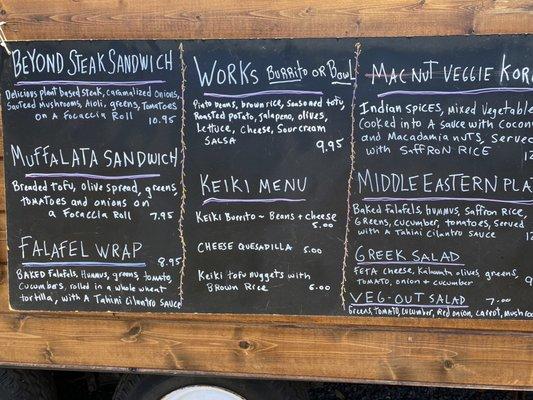 BEYOND STEAK SANDWICH
Delicious plant based steak, caramalized onions,
Sauteed mushrooms, Aioli, greens, tomatoes
on a Focaccia Roll 10.95
MUFFALATA SANDWICH
Breaded tofu, olive spread, greens,
tomatoes and onions on
a Focaccia Roll 7.95
FALAFEL WRAP 8.95
BAKED Falafels, Hummus, greens, tomato,
Cucumbers, rolled in a whole wheat
tortilla, with a Tahini Cilantro sauce
WORKS BURRITO OR BOWL
Pinto beans, brown rice, seasoned tofu,
Roasted potato, jalapeno, olives,
Lettuce, cheese, sour cream
SALSA 9.95
KEIKI MENU
KEIKI BURRITO ~ Beans + cheese
5.00
CHEESE QUESADILLA ~ 5.00
Keiki tofu nuggets with
Brown Rice 6.00
MAC NUT VEGGIE KOR
INDIAN SPICES, MIXED VEGETABLE
COOKED INTO A SAUCE WITH COCON
AND MACADAMIA NUTS, SERVED
WITH SAFFRON RICE
MIDDLE EASTERN PLA
Baked Falafels, Hummus, saffron Rice,
Greens, cucumber, tomatoes, served
with a Tahini Cilantro sauce
GREEK SALAD
FETA cheese, Kalamata olives, greens,
TOMATO, onion + cucumber
VEG-OUT SALAD 7.00
Greens, tomato, cucumber, Red onion, carrot, mushroo